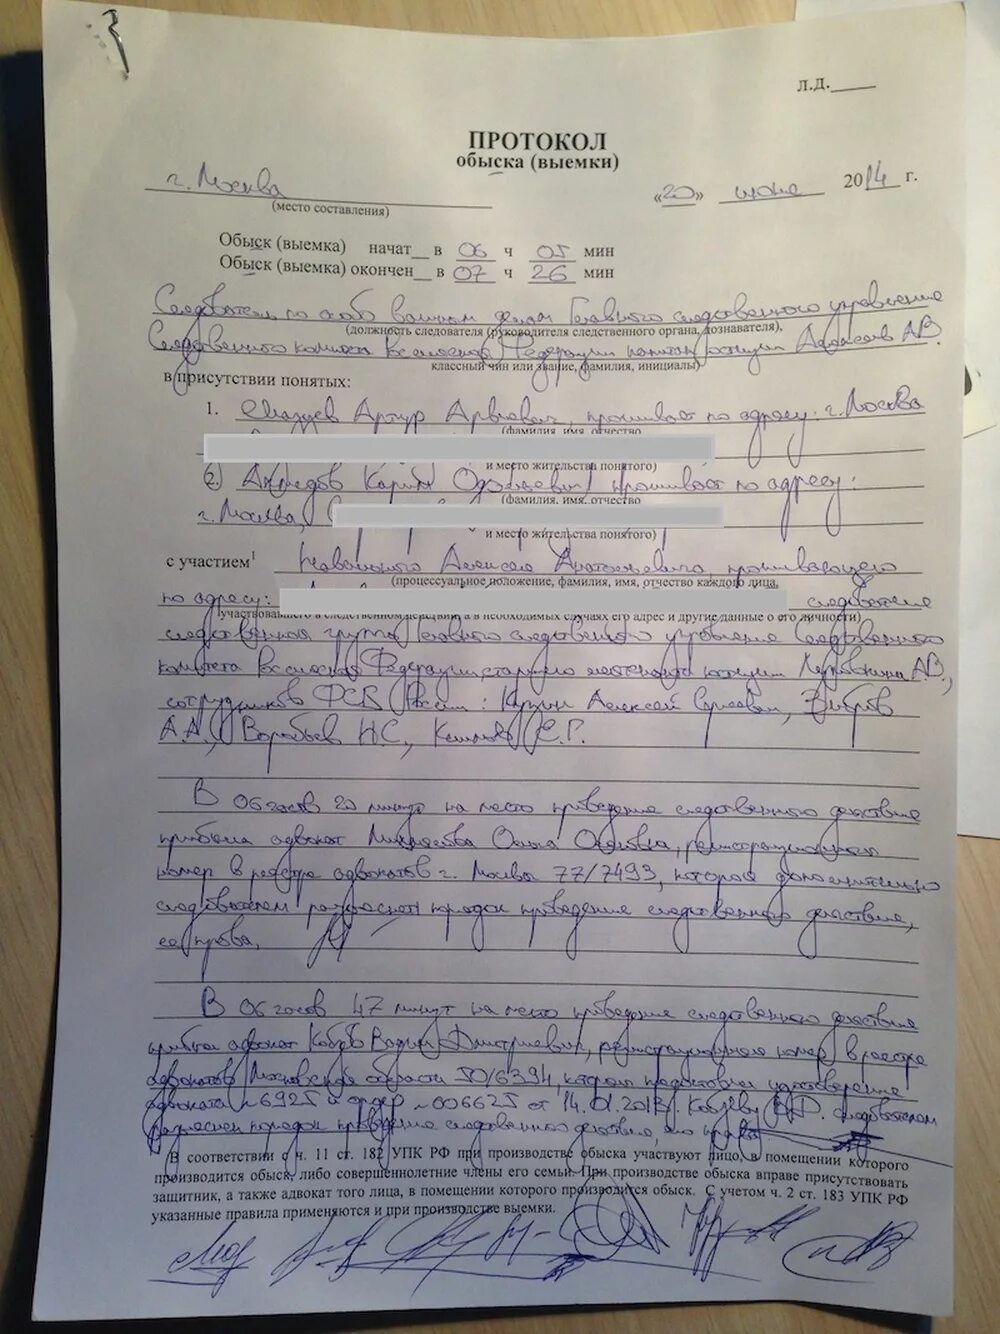 Л.Д.
ПРОТОКОЛ
обыска (выемки)
г. Москва «20» июня 2014 г.
(место составления)
Обыск (выемка) начат__ в 06 ч 05 мин
Обыск (выемка) окончен__ в 07 ч 26 мин
Следователь по особо важным делам Главного следственного управления
(должность следователя (руководителя следственного органа, дознавателя),
Следственного комитета Российской Федерации капитан юстиции А.В.
классный чин или звание, фамилия, инициалы)
в присутствии понятых:
1. Артур проживает по адресу: г. Москва
(фамилия, имя, отчество
и место жительства понятого)
2) Карим проживает по адресу:
(фамилия, имя, отчество
г. Москва,
и место жительства понятого)
с участием¹ Навального Алексея Анатольевича, проживающего
(процессуальное положение, фамилия, имя, отчество каждого лица,
по адресу: следователя
участвовавшего в следственном действии, а в необходимых случаях его адрес и другие данные о его личности)
следственной группы Главного следственного управления Следственного
комитета Российской Федерации старшего лейтенанта юстиции А.В.,
сотрудников ФСБ России: Алексей Сергеевич,
А.А., Воробьев Н.С., Е.Г.
В 06 часов 20 минут на место проведения следственного действия
прибыла адвокат Михайлова Ольга Олеговна, регистрационный
номер в реестре адвокатов г. Москвы 77/7493, которой дополнительно
следователем разъяснен порядок проведения следственного действия,
ее права.
В 06 часов 47 минут на место проведения следственного действия
прибыл адвокат Кобзев Вадим Дмитриевич, регистрационный номер в реестре
адвокатов Московской области 50/6394, который предоставил удостоверение
адвоката № 6925 и ордер № 006625 от 14.01.2013. Кобзеву В.Д. следователем
разъяснен порядок проведения следственного действия, его права
В соответствии с ч. 11 ст. 182 УПК РФ при производстве обыска участвуют лицо, в помещении которого
производится обыск, либо совершеннолетние члены его семьи. При производстве обыска вправе присутствовать
защитник, а также адвокат того лица, в помещении которого производится обыск. С учетом ч. 2 ст. 183 УПК РФ
указанные правила применяются и при производстве выемки.